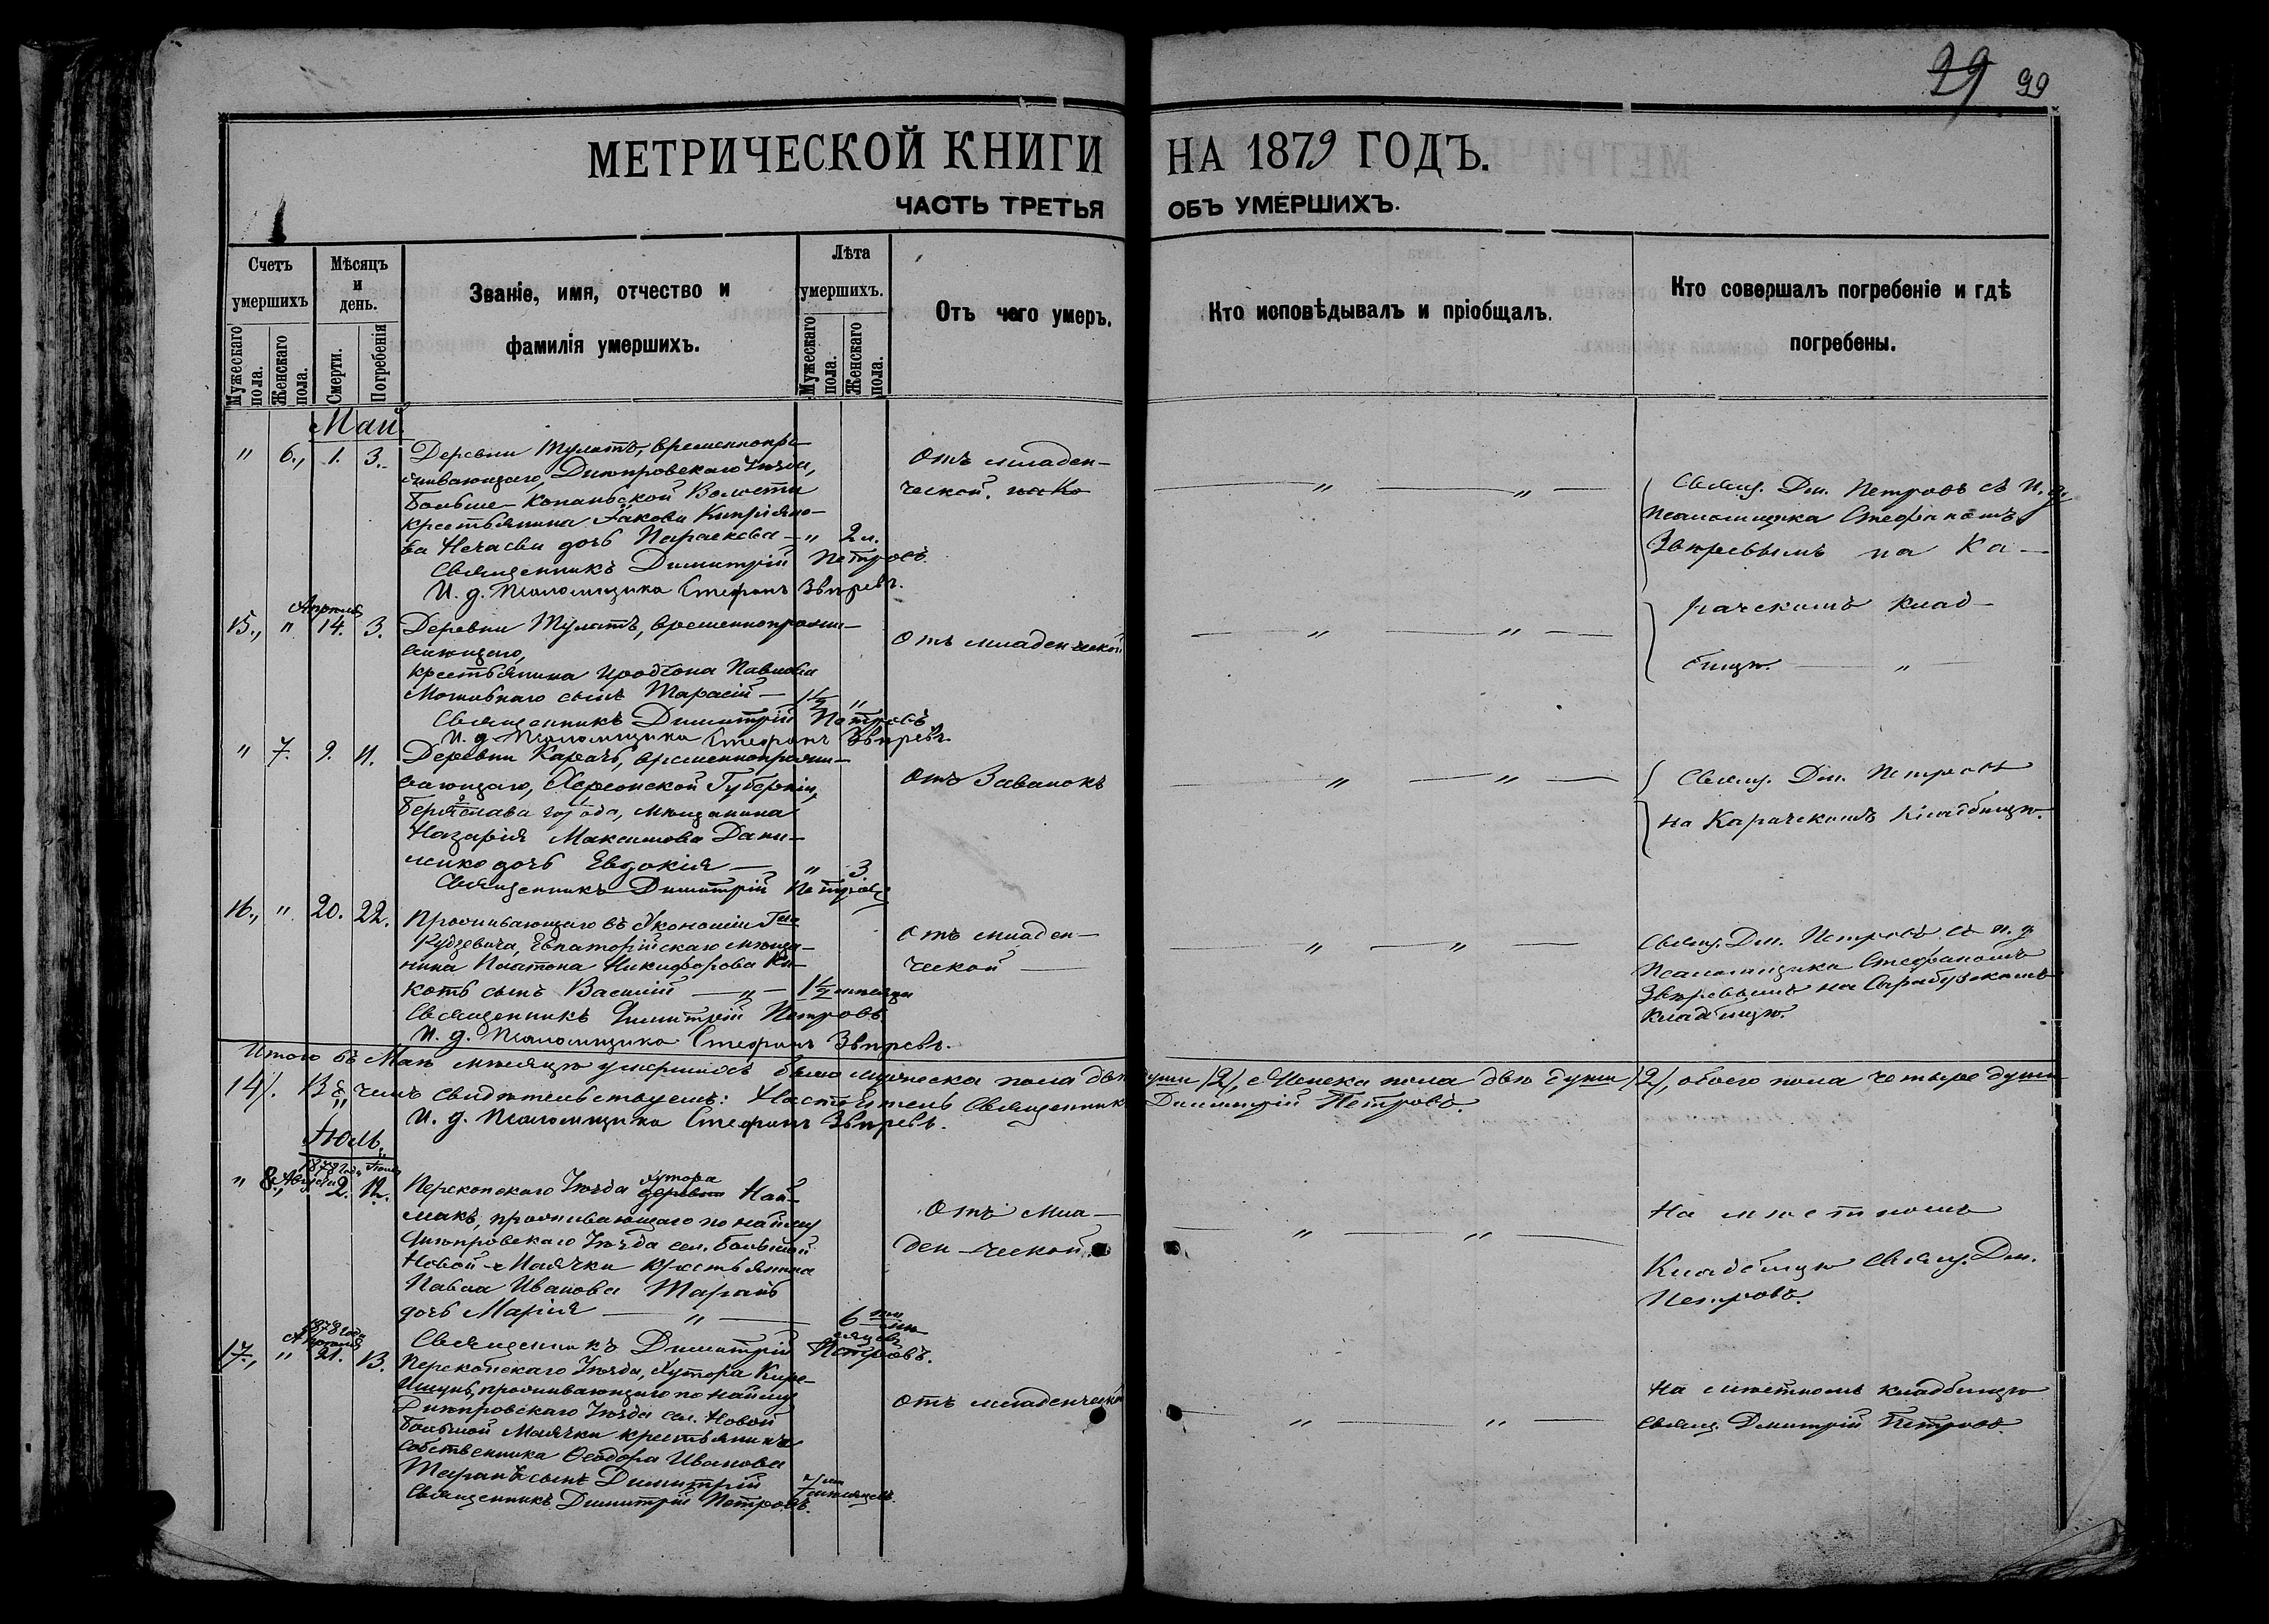 29 99
МЕТРИЧЕСКОЙ КНИГИ НА 1879 ГОДЪ.
ЧАСТЬ ТРЕТЬЯ ОБЪ УМЕРШИХЪ.
Счетъ умершихъ
Мужескаго пола.
Женскаго пола.
Мѣсяцъ и день.
Смерти.
Погребенія
Званіе, имя, отчество и
фамилія умершихъ.
Лѣта умершихъ.
Мужескаго пола.
Женскаго пола.
Отъ чего умеръ.
Кто исповѣдывалъ и пріобщалъ.
Кто совершалъ погребеніе и гдѣ
погребены.
Май.
" 6., 1. 3.
Деревни Тулатъ, временнопро-
живающаго, Днѣпровскаго Уѣзда,
Больше-Копаньской Волости
крестьянина Іакова Кипріано-
ва Нечаева дочь Параскева — " 2 л.
Священникъ Димитрій Петровъ.
И. д. Псаломщика Стефанъ Звѣревъ.
Отъ младен-
ческой.
Свящ. Дм. Петровъ съ И. д.
Псаломщика Стефаномъ
Звѣревымъ на Ка-
рачскомъ клад-
бищѣ. — "
Апрѣля
15., " 14. 3.
Деревни Тулатъ, временнопрожи-
вающаго,
крестьянина Иродіона Павлова
сынъ Тарасій — 1½ "
Священникъ Димитрій Петровъ
И. д. Псаломщика Стефанъ Звѣревъ.
Отъ младенческой
" 7. 9. 11.
Деревни Карачь, временнопрожи-
вающаго, Херсонской Губерніи,
Берислава города, мѣщанина
Назарія Максимова Дани-
лико дочь Евдокія — " 3.
Священникъ Димитрій Петровъ
Отъ
Свящ. Дм. Петровъ
на Карачскомъ Кладбищѣ.
16., " 20. 22.
Проживающаго въ Экономіи Гна
Рудзевича, Евпаторійскаго мѣща-
нина Платона Никифорова Ки-
коть сынъ Василій — " — 1½ мѣсяца
Священникъ Димитрій Петровъ
И. д. Псаломщика Стефанъ Звѣревъ.
Отъ младен-
ческой —
Свящ. Дм. Петровъ съ и. д.
Псаломщика Стефаномъ
Звѣревымъ на Сарабузскомъ
Кладбищѣ.
Итого въ Маѣ мѣсяцѣ умершихъ было мужеска пола двѣ души /2/, женска пола двѣ души /2/, обоего пола четыре души
/4/. Въ чемъ свидѣтельствуемъ: Настоятель Священникъ Димитрій Петровъ.
И. д. Псаломщика Стефанъ Звѣревъ.
Іюль.
1878 года
" 8., Августа 2. 12.
Перекопскаго Уѣзда хутора деревни Най-
макъ, проживающаго по найму
Днѣпровскаго Уѣзда сел. Большой
Новой-Маячки крестьянина
Павла Иванова Таранъ
дочь Марія — " — 6 мѣ-
сяцевъ
Священникъ Димитрій Петровъ.
Отъ мла-
ден-ческой.
На мѣстномъ
Кладбищѣ Свящ. Дм.
Петровъ.
1878 года
17., " 21. 13.
Перекопскаго Уѣзда, Хутора Кире-
проживающаго по найму
Днѣпровскаго Уѣзда сел. Новой
Большой Маячки крестьянина
собственника Ѳеодора Иванова
Таранъ сынъ Димитрій 7 мѣсяцевъ.
Священникъ Димитрій Петровъ.
Отъ младенческой
На мѣстномъ кладбищѣ
Свящ. Димитрій Петровъ.